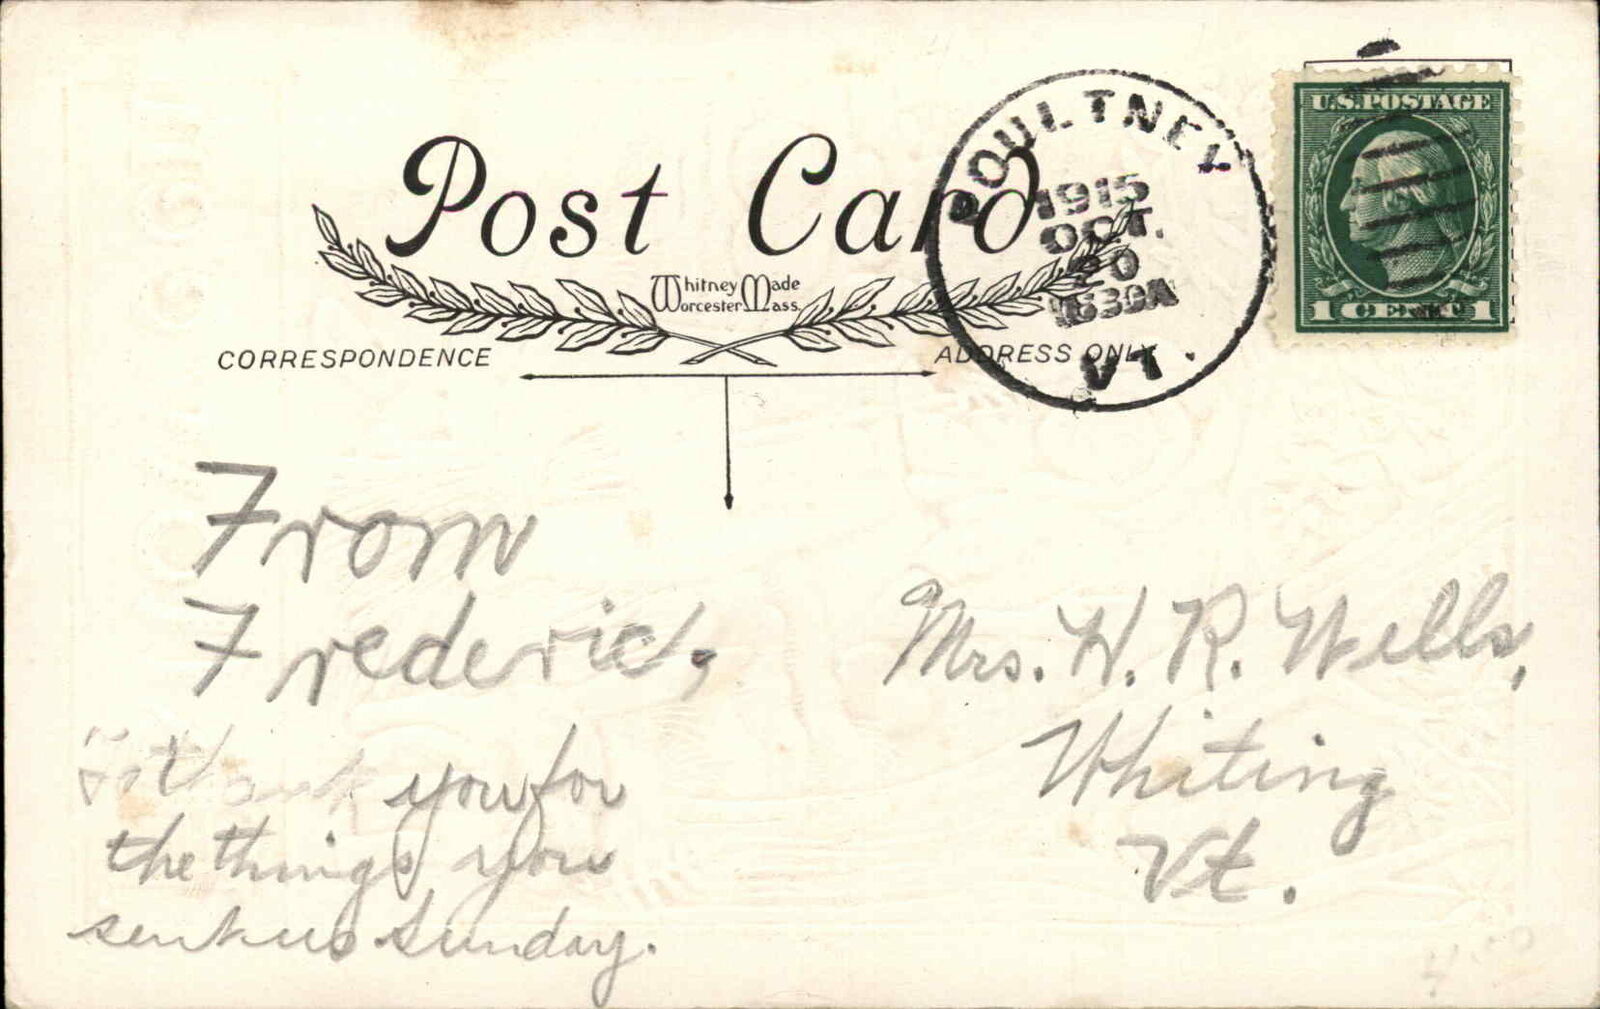 POULTNEY
1915
OCT.
20
VT.
U.S.POSTAGE
1 CENT 1
Post Card
Whitney Made
Worcester Mass.
CORRESPONDENCE
ADDRESS ONLY
From
Frederic,
thank you for
the things you
sent us Sunday.
Mrs. H. R. Wells,
Whiting
Vt.